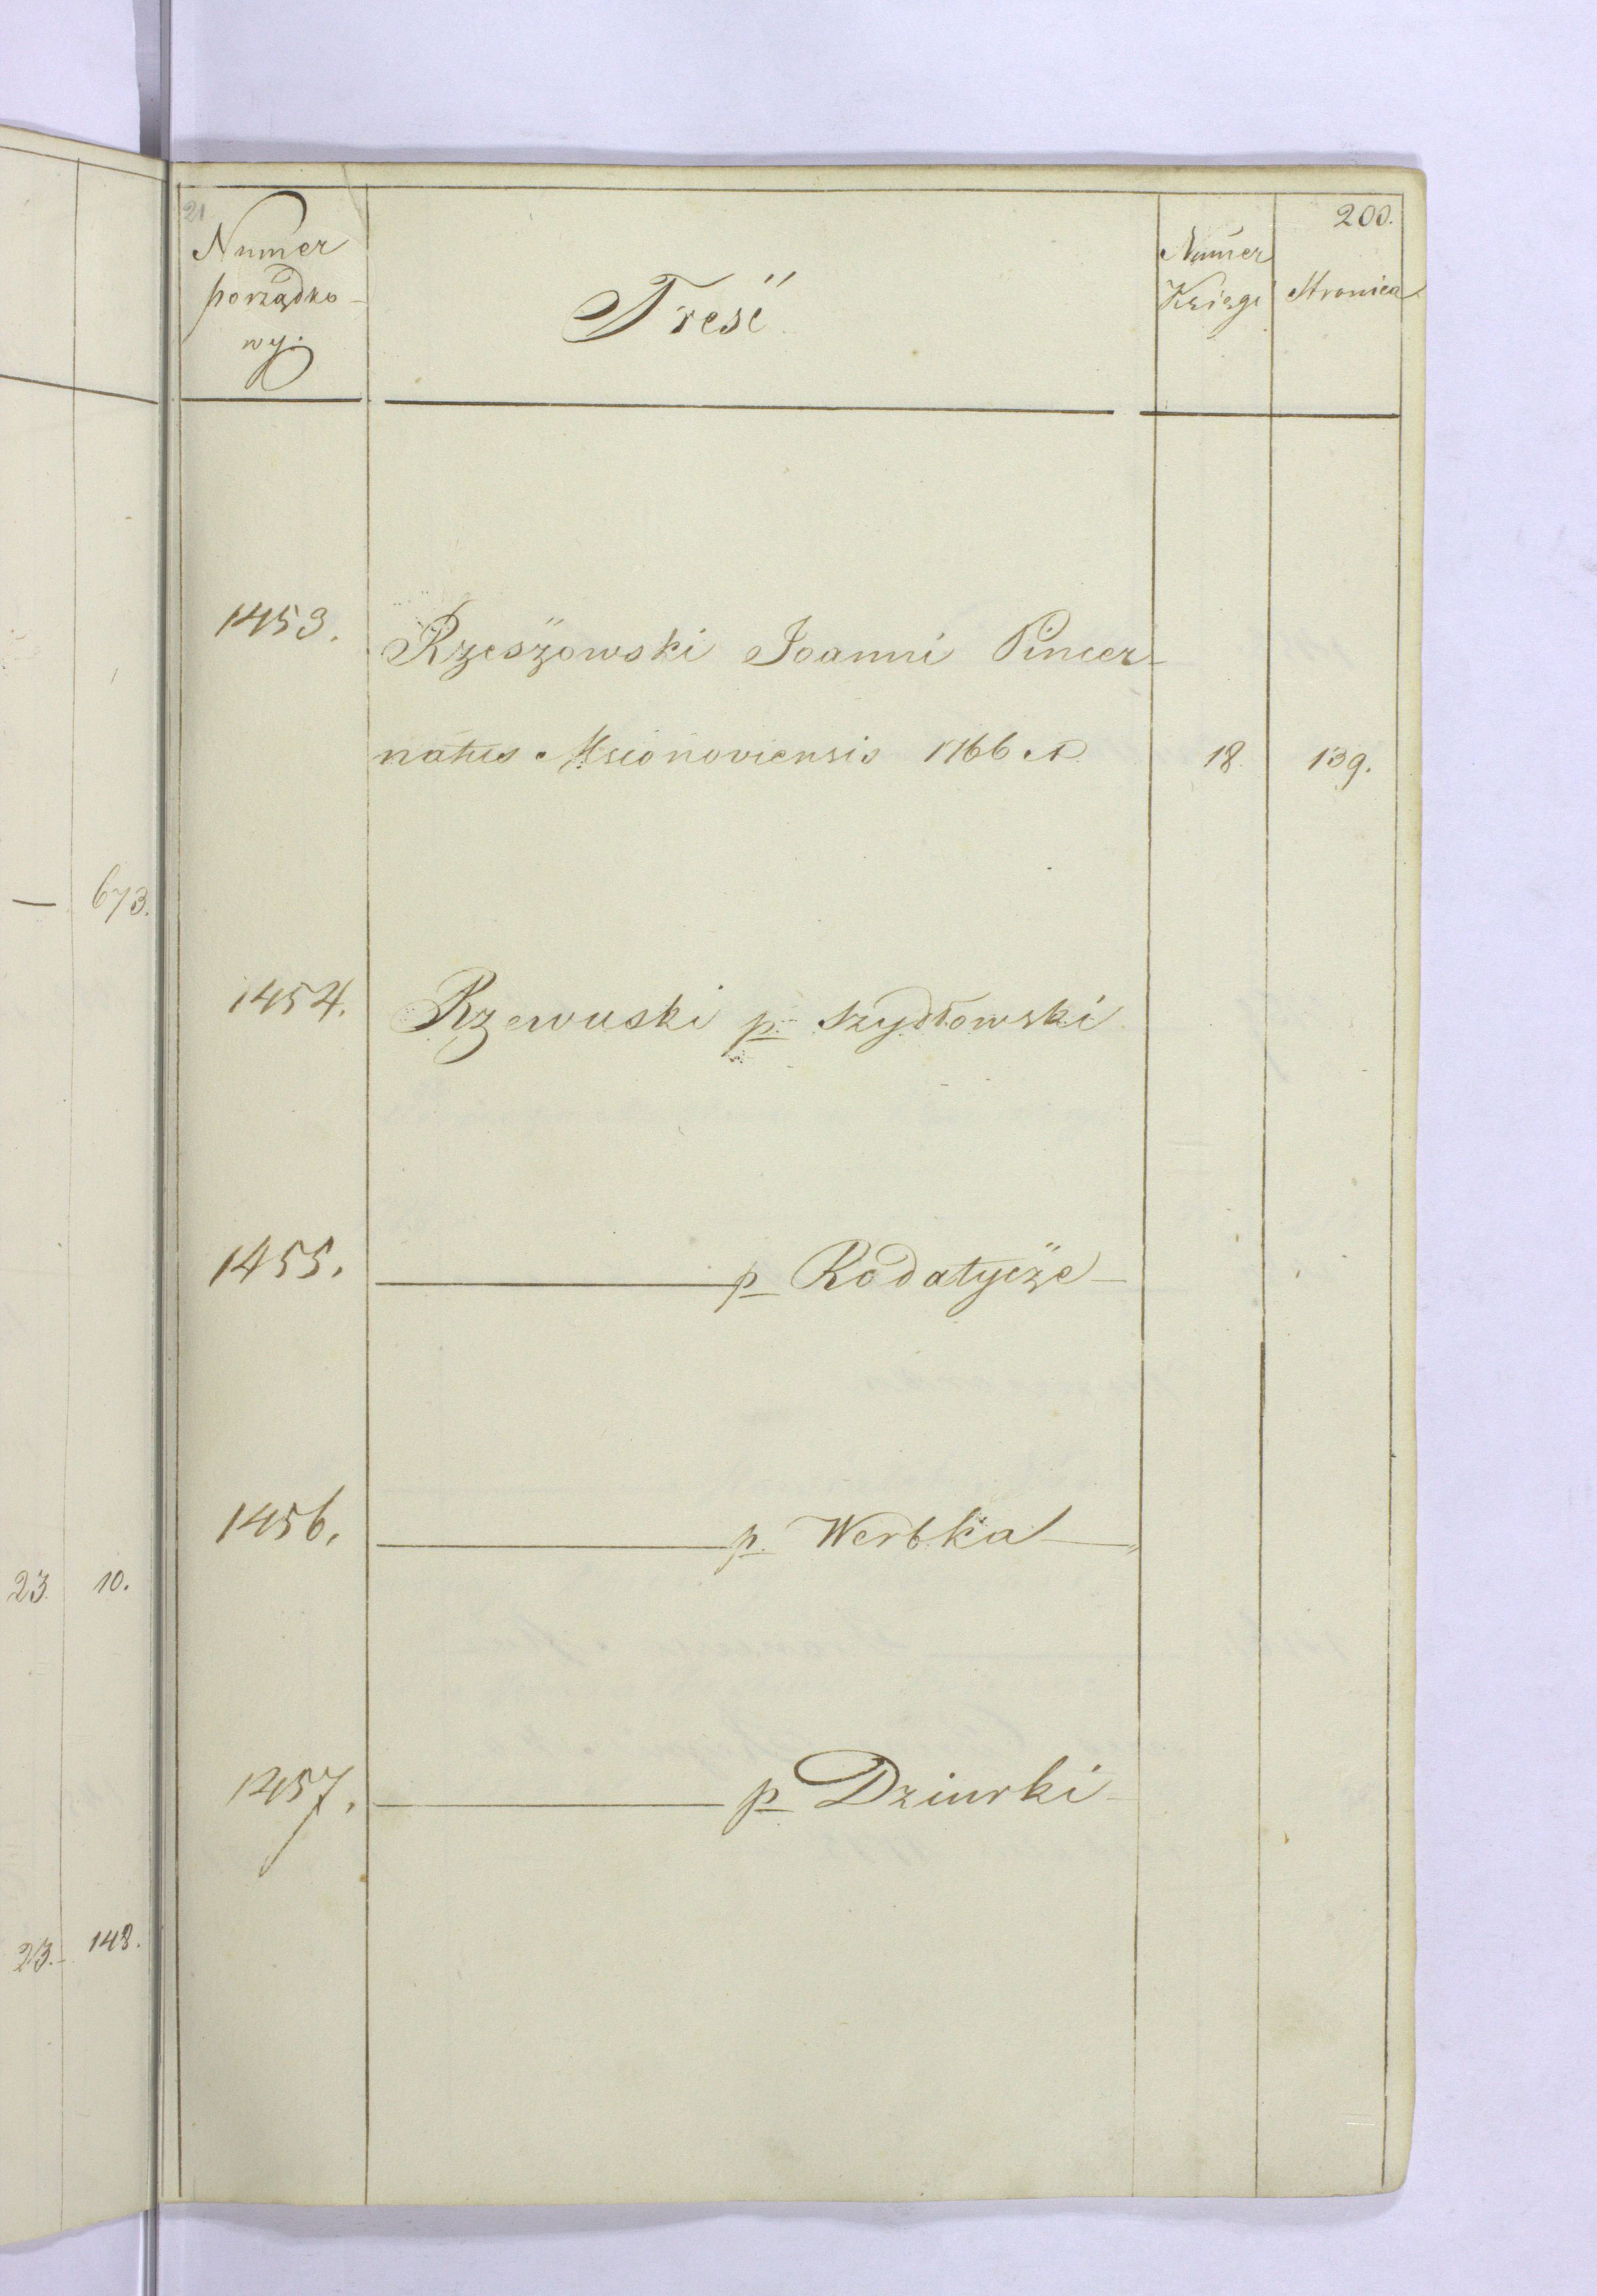 673.
23. 10.
23. 143.
21
200.
Numer
porządko-
wy.
Treść
Numer
Księgi
Stronica
1453. Rzeszowski Joanni Pincer-
natus Mscionoviensis 1766 A 18 139.
1454. Rzewuski p. Szydłowski
1455. p Rodatycze
1456. p. Werbka
1457. p Dziurki